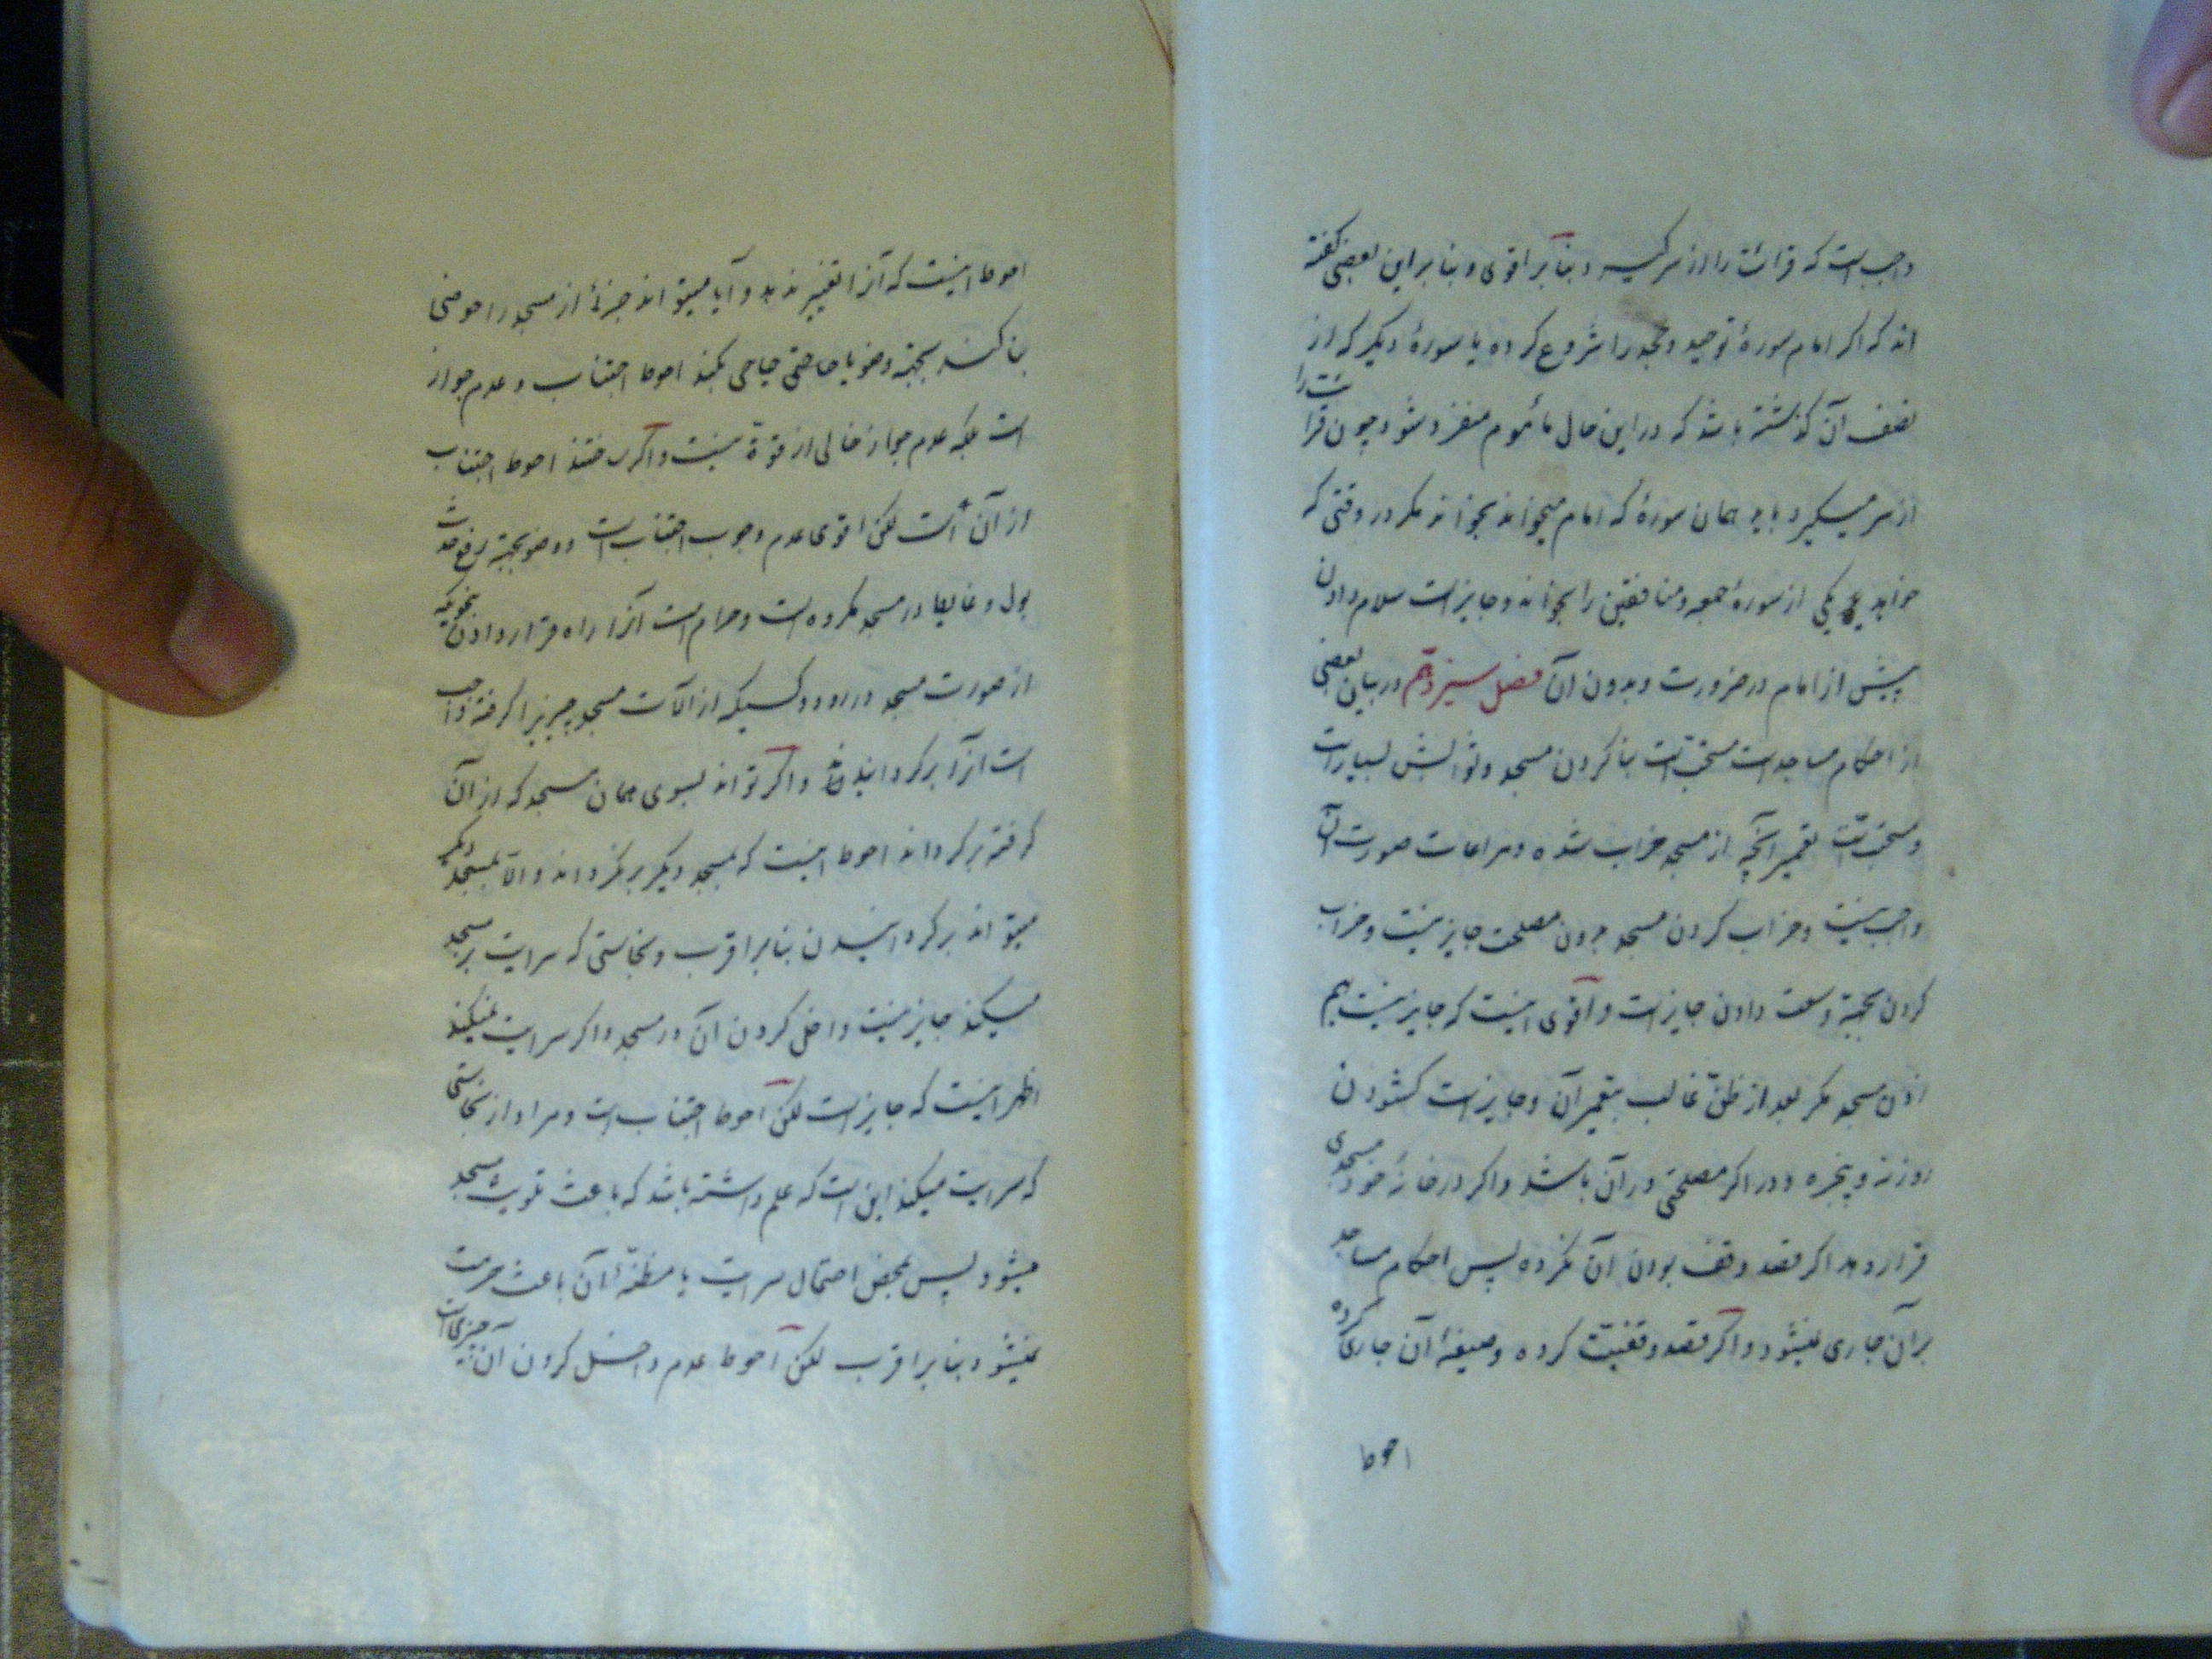 واجب است که قرائت را از سر گیرد و بنا بر اقوی و بنا بر این بعضی گفته
اند که اگر امام سورهٔ توحید و جحد را شروع کرده یا سورهٔ دیگر که از
نصف آن گذشته باشد که در این حال مأموم منفرد شود چون قرائت را
از سر میگیرد باید همان سورهٔ که امام میخواند بخواند مگر در وقتی که
خواهد یکی از سورهٔ جمعه و منافقین را بخواند و جایز است سلام دادن
پیش از امام در ضرورت و بدون آن فصل سیزدهم در بیان بعضی
از احکام مساجد است مستحبّ است بنا کردن مسجد و ثوابش بسیار است
و مستحبّ است تعمیر آنچه از مسجد خراب شده و مراعات صورت آن
واجب نیست و خراب کردن مسجد بدون مصلحت جایز نیست و خراب
کردن بجهة وسعت دادن جایز است و اقوی اینست که جایز نیست بهم
زدن مسجد مگر بعد از ظنّ غالب بتعمیر آن و جایز است گشودن
روزنه و پنجره و در اگر مصلحتی در آن باشد و اگر در خانهٔ خود مسجدی
قرار دهد اگر قصد وقف بودن آن نکرده پس احکام مساجد
بر آن جاری نمیشود و اگر قصد وقفیّت کرده و صیغهٔ آن جاری کرده
احوط
احوط اینست که آنرا تغییر ندهد و آیا میتواند جزئی از مسجد را حوضی
بنا کند بجهة وضو یا چاهی بکند احوط اجتناب و عدم جواز
است بلکه عدم جواز خالی از قوة نیست و اگر ساختند احوط اجتناب
از آن است لکن اقوی عدم وجوب اجتناب است و وضو بجهة رفع حدث
بول و غایط در مسجد مکروه است و حرام است آنرا راه قرار دادن بنحویکه
از صورت مسجد در رود و کسیکه از آلات مسجد چیزیرا گرفته واجب
است آنرا برگرداند و اگر تواند بسوی همان مسجد که از آن
گرفته برگرداند احوط اینست که بمسجد دیگر برنگرداند و الّا بمسجد دیگر
میتواند برگردانیدن بنا بر اقرب و نجاستی که سرایت بر مسجد
میکند جایز نیست داخل کردن آن در مسجد و اگر سرایت نمیکند
اظهر اینست که جایز است لکن احوط اجتناب است و مراد از نجاستی
که سرایت میکند این است که علم داشته باشد که باعث تلویث مسجد
میشود پس بمحض احتمال سرایت یا مظنّهٔ آن باعث حرمت
نمیشود بنا بر اقرب لکن احوط عدم داخل کردن آن چیزی است